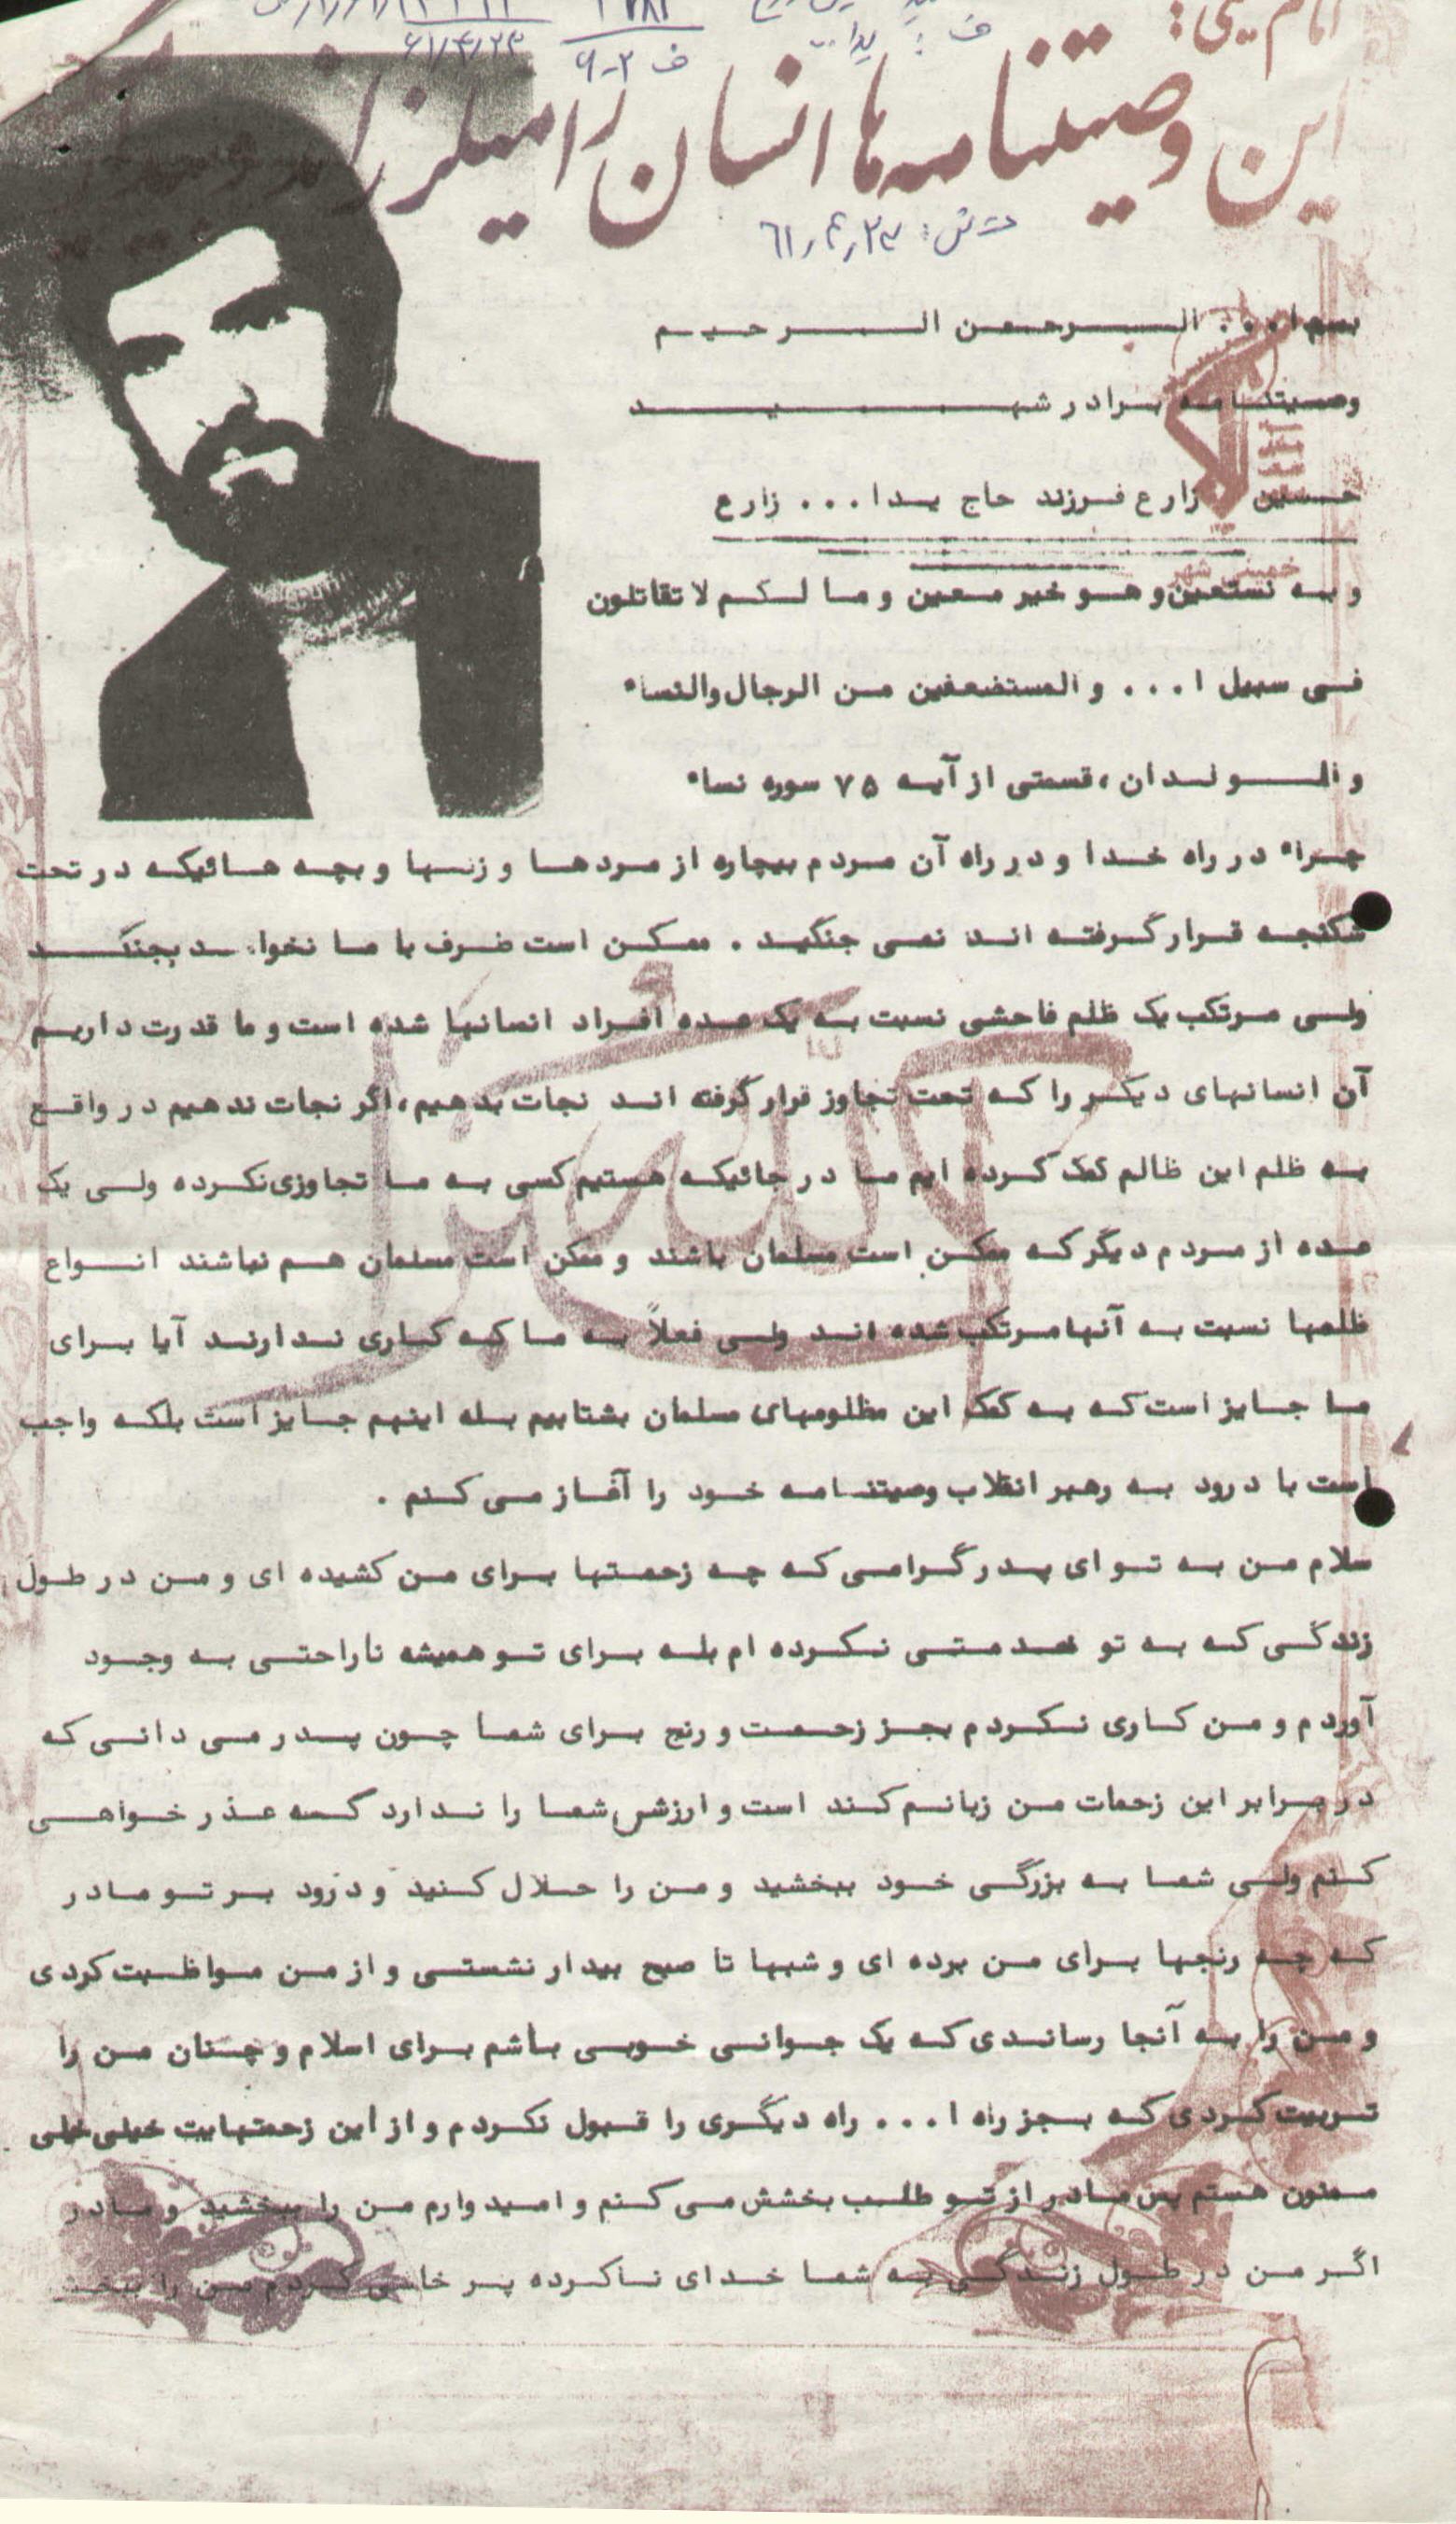 امام خمینی:
این وصیتنامه ها انسان را میلرزاند
ف:
ف ۲-۶
۶۱/۴/۲۳
ت ش: ۶۱/۴/۲۳
بسم ا... الرحمن الرحیم
وصیتنامه برادر شهید
حسین زارع فرزند حاج یدا... زارع
خمینی شهر
و به نستعین و هو خیر معین و ما لکم لا تقاتلون
فی سبیل ا... و المستضعفین من الرجال والنساء
و الولدان، قسمتی از آیه ۷۵ سوره نساء
چراء در راه خدا و در راه آن مردم بیچاره از مردها و زنها و بچه هائیکه در تحت
شکنجه قرار گرفته اند نمی جنگید . ممکن است طرف با ما نخواهد بجنگد
ولی مرتکب یک ظلم فاحشی نسبت به یک عده افراد انسانها شده است و ما قدرت داریم
آن انسانهای دیگر را که تحت تجاوز قرار گرفته اند نجات بدهیم، اگر نجات ندهیم در واقع
به ظلم این ظالم کمک کرده ایم ما در جائیکه هستیم کسی به ما تجاوزی نکرده ولی یک
عده از مردم دیگر که ممکن است مسلمان باشند و ممکن است مسلمان هم نباشند انواع
ظلمها نسبت به آنها مرتکب شده اند ولی فعلاً به ما که کاری ندارند آیا برای
ما جایز است که به کمک این مظلومهای مسلمان بشتابیم بله اینهم جایز است بلکه واجب
است با درود به رهبر انقلاب وصیتنامه خود را آغاز می کنم .
سلام من به تو ای پدر گرامی که چه زحمتها برای من کشیده ای و من در طول
زندگی که به تو خدمتی نکرده ام بله برای تو همیشه ناراحتی به وجود
آوردم و من کاری نکردم بجز زحمت و رنج برای شما چون پدر می دانی که
در برابر این زحمات من زبانم کند است و ارزش شما را ندارد که عذر خواهی
کنم ولی شما به بزرگی خود ببخشید و من را حلال کنید و درود بر تو مادر
که چه رنجها برای من برده ای و شبها تا صبح بیدار نشستی و از من مواظبت کردی
و من را به آنجا رساندی که یک جوانی خوبی باشم برای اسلام و چنان من را
تربیت کردی که بجز راه ا... راه دیگری را قبول نکردم و از این زحمتهایت خیلی خیلی
ممنون هستم پس مادر از تو طلب بخشش می کنم و امیدوارم من را ببخشید و مادر
اگر من در طول زندگی به شما خدای ناکرده پر خاشی کردم من را ببخش